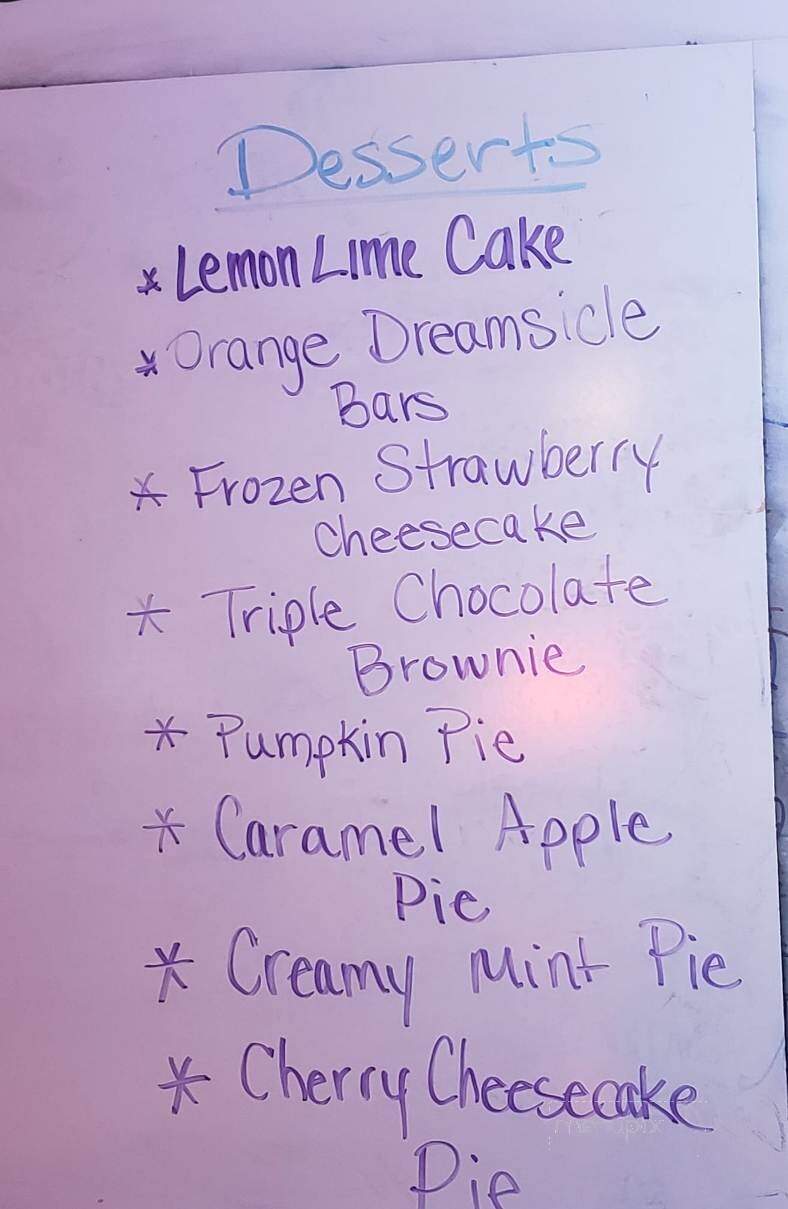 Desserts
* Lemon Lime Cake
* Orange Dreamsicle
Bars
* Frozen Strawberry
Cheesecake
* Triple Chocolate
Brownie
* Pumpkin Pie
* Caramel Apple
Pie
* Creamy Mint Pie
* Cherry Cheesecake
Pie